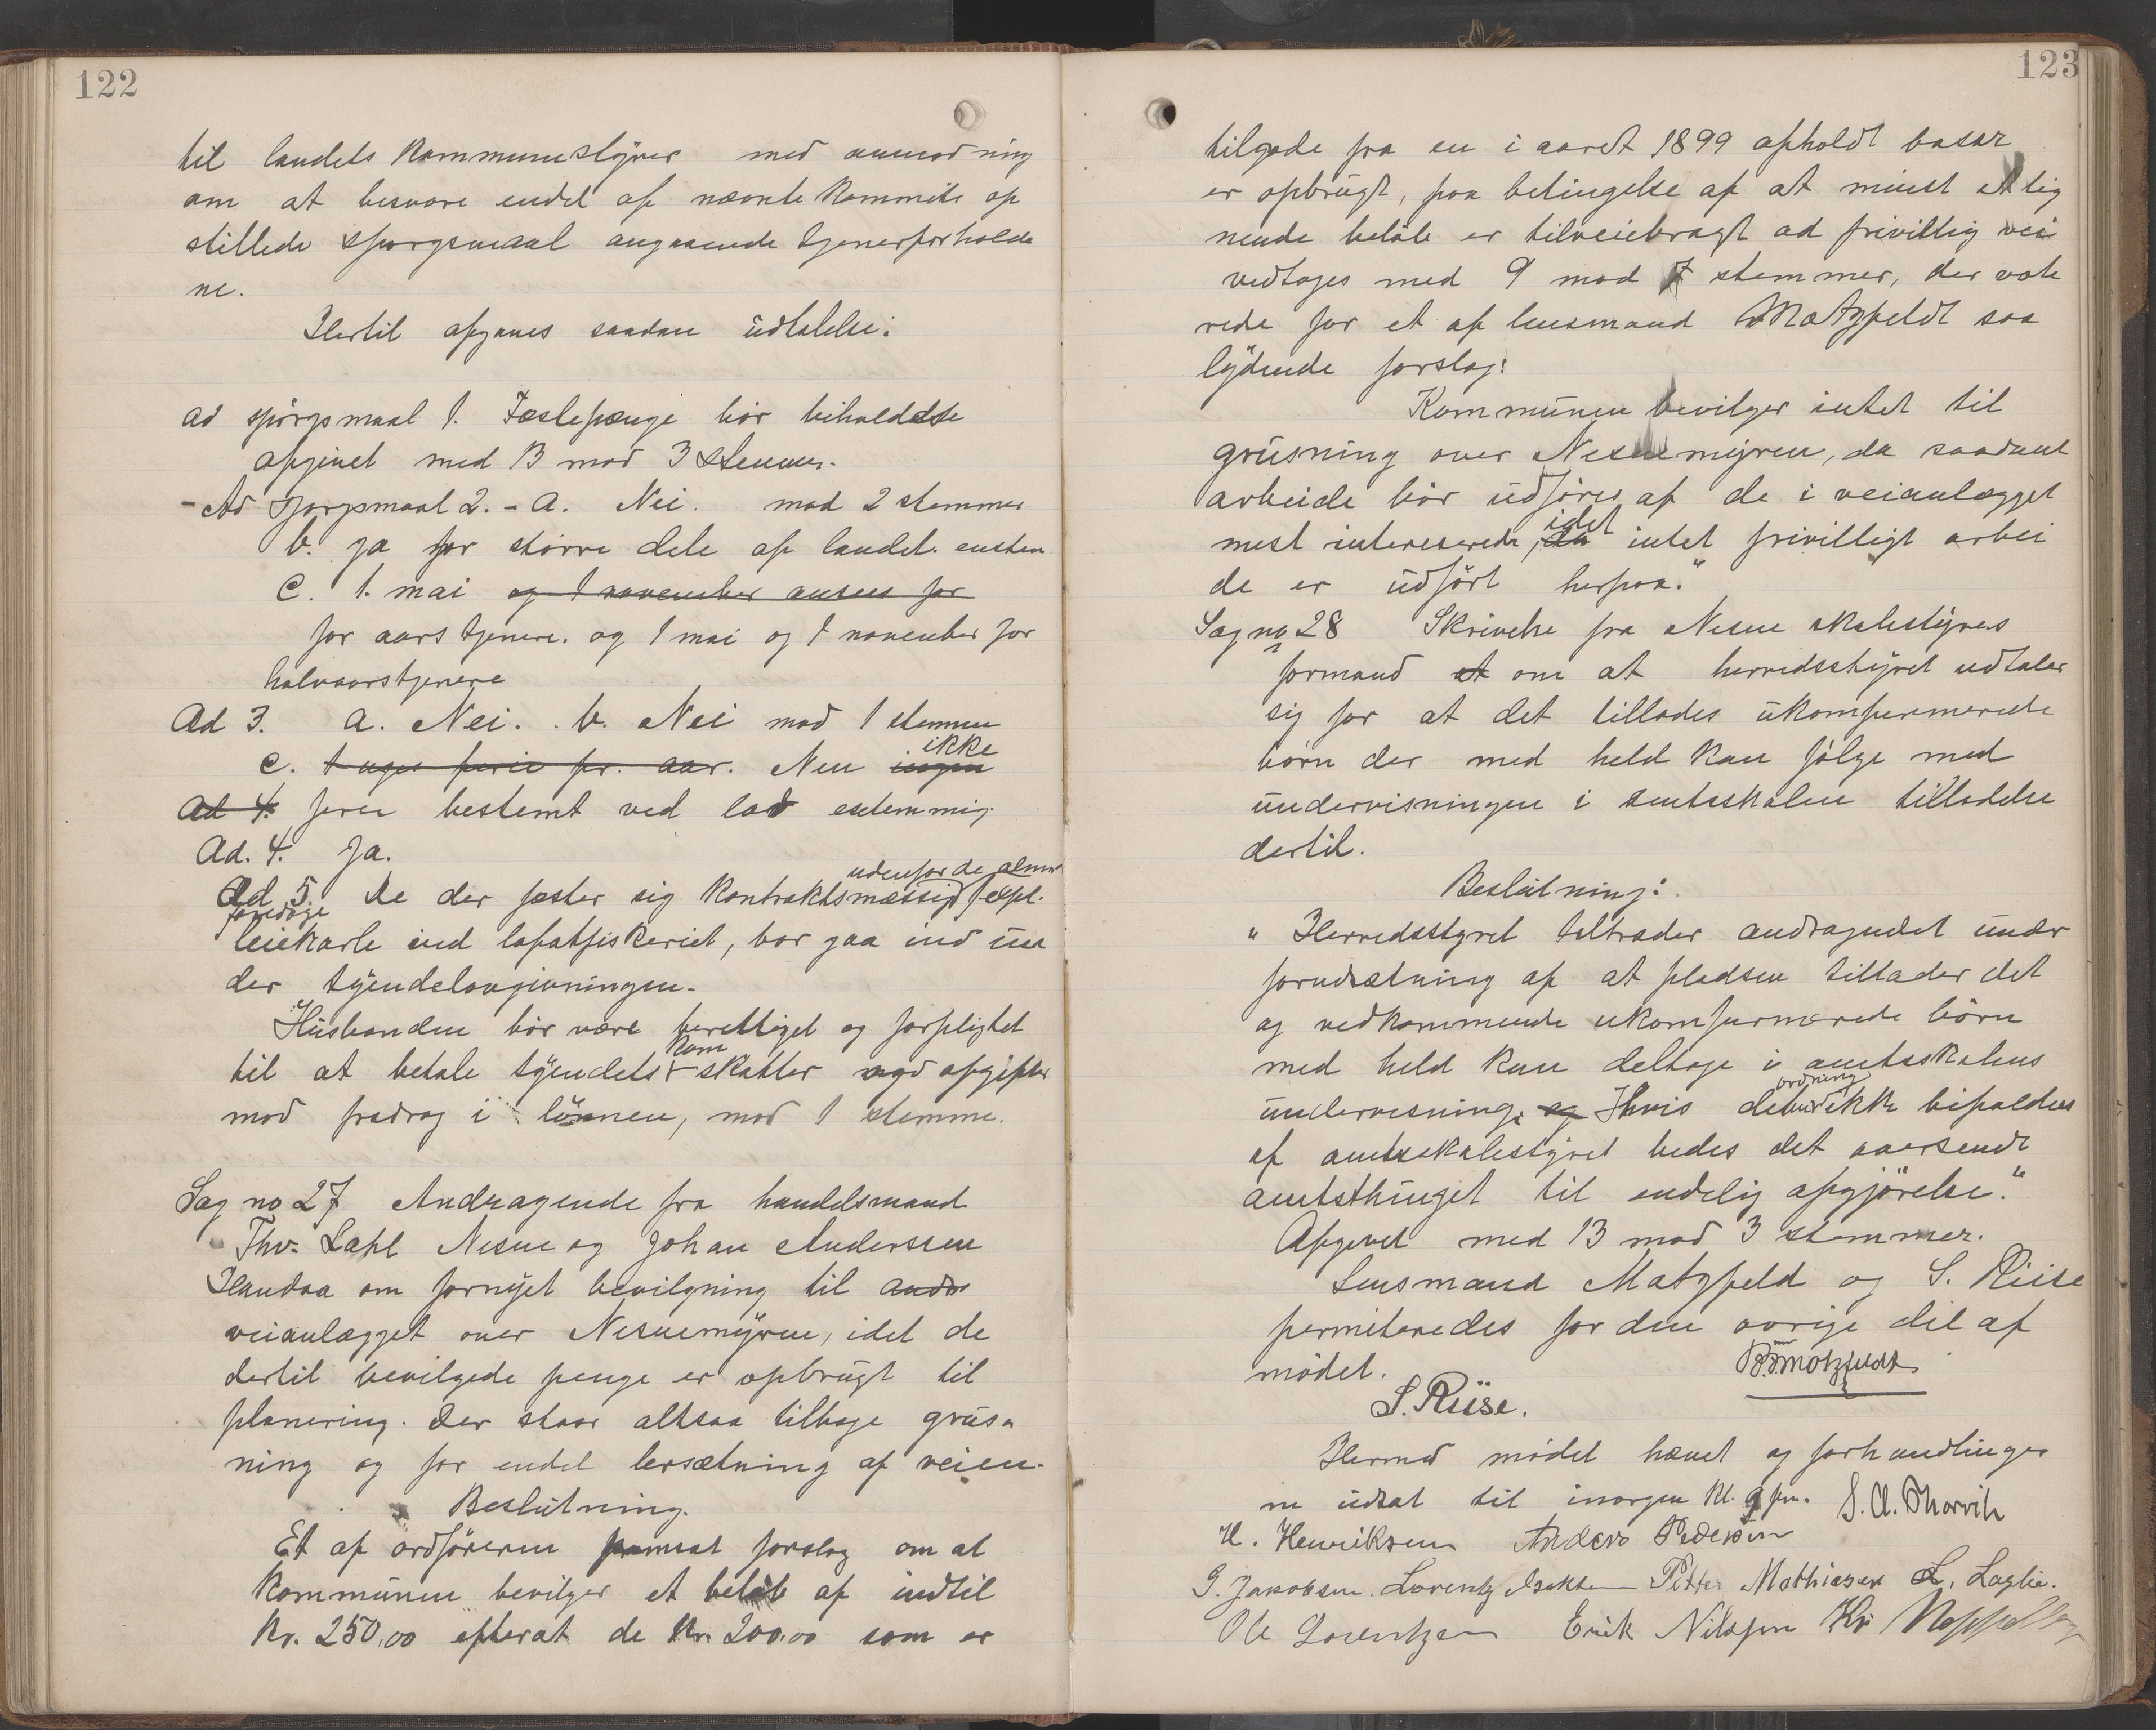 122
til landets kommunestyrer med anmodning
om at besvare endel af nævnte Kommite op
stillede spørgsmaal angaaende tjenerforholde
ne.
Hertil afgaves saadan üdtalelse:
ad spörgsmaal 1. Fæstepenge bör beholdes
afgivet med 13 mod 3 stemmer.
- Ad spørgsmaal 2. - a. Nei. mod 2 stemmer
b. ja for större dele af landet. enstem
C. 1. mai og 1 november ansees for
for aarstjenere. og 1 mai og 1 november for
halvaarstjenere
Ad 3. a. Nei. . b. Nei mod 1 stemme
ikke
c. 1 uges ferie pr. aar. Nei ingen
Ad 4. ferie bestemt ved lov estemmig
Ad. 4. Ja.
udenfor de alm
Ad 5. De der fæster sig kontraktsmæssig f expl.
foredøge
leiekarle ved lofotfiskeriet, bør gaa ind ün
der tyendelovgivningen.
Hüsbonden bör være berettiget og forpligtet
kom
til at betale tyendets skatter og afgifter
mod fradrag i lönnen, mod 1 stemme.
Sag no 27 Andragende fra handelsmand
Thv. Dahl Nesne og Johan Anderssen
Handaa om fornyet bevilgning til andr
veianlægget over Nesnemyren, idet de
dertil bevilgede penge er opbrügt til
planering. Der staar altsaa tilbage grüs-
ning og for endel lersætning af veien.
Beslütning.
Et af ordföreren fremsat forslag om at
kommünen bevilger et belöb af indtil
Kr. 250,00 efterat de Kr. 200,00 som er
123
tilgode fra en i aaret 1899 afholdt basar
er opbrügt, paa betingelse af at minst et lig
nende belöb er tilveiebragt ad frivillig vei
vedtoges med 9 mod 7 stemmer, der vote
rede for et af lensmand Motzfeldt saa
lydende forslag:
Kommünen bevilger intet til
grüsning over Nesnemyren, da saadant
arbeide bör üdföres af de i veianlægget
idet
mest interesserede, da intet frivilligt arbei
de er üdfört herpaa."
Sag no 28 Skrivelse fra Nesne skolestyres
formand at om at herredsstyret udtaler
sig for at det tillades ükonfirmerede
börn der med held kan fölge med
ündervisningen i amtsskolen tilladelse
dertil.
Beslütning:
" Herredsstyret tiltræder andragendet ünder
forudsætning af at pladsen tillader det
og vedkommende ukonfirmerede börn
med held kan deltage i amtsskolens
ordning
ündervisning. og Hvis denne ikke bifaldes
af amtsskolestyret bedes det oversendt
amtsthinget til endelig afgjörelse."
Afgivet med 13 mod 3 stemmer.
Lensmand Motzfeld og S. Riise
permiteredes for den øvrige del af
mödet.
Motzfeldt
S. Riise.
Hermed mödet hævet og forhandlinger
ne üdsat til imorgen kl. 9 fm.
H. Henriksen Anders Pedersen
G. Jakobsen. Lorentz Isaksen Petter Mathiasen L. Laglie.
Ole Lorentzen Erik Nilssen Kr